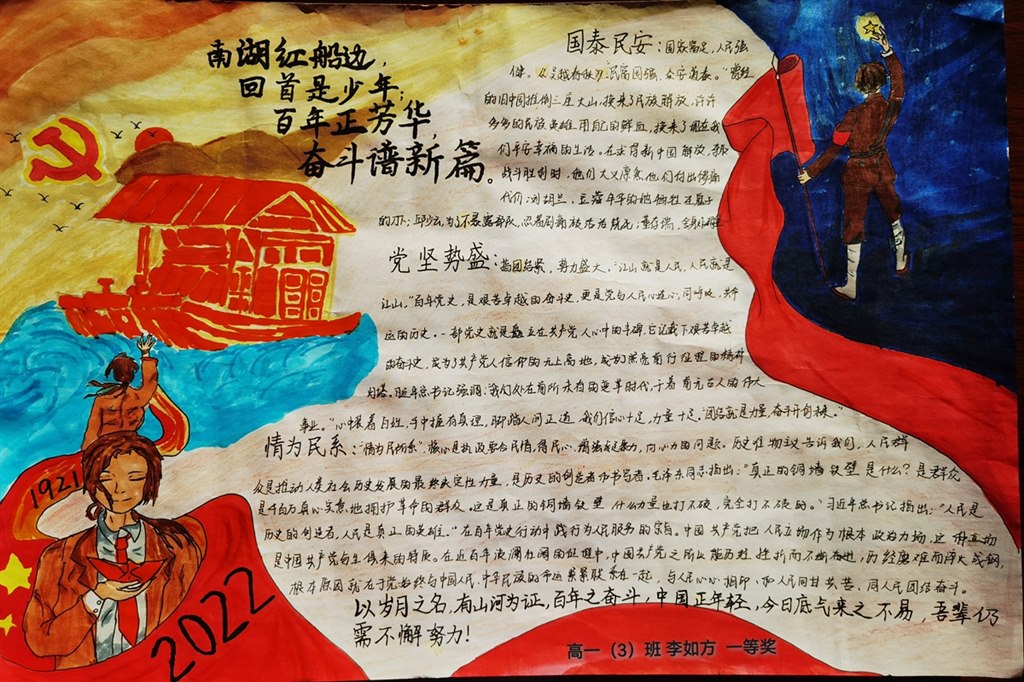 南湖红船边,
回首是少年;
百年正芳华,
奋斗谱新篇。
国泰民安:国家富足,人民强
健。《吴越春秋》:民富国强,众安道泰。"曾经
的旧中国推倒三座大山,换来了民族解放,许许
多多的民族英雄用自己的鲜血,换来了现在我
们平安幸福的生活。在求得新中国解放,
战斗胜利时,他们大义凛然他们付出
代价:刘胡兰,豆蔻年华的她牺牲在
的刀下;邱少云,为了不暴露部队,忍着
党坚势盛:指团结紧,势力盛大。"江山就是人民,人民就是
江山。"百年党史,是艰苦卓越的奋斗史,更是党与人民心连心,同呼吸,共命
运的历史。一部党史就是矗立在共产党人心中的丰碑,它记载下艰苦卓越
的奋斗史,成为了共产党人信仰的九上高地,成为了照亮前行征程的精神
灯塔。习近平总书记强调:我们处在前所未有的变革时代,干着前无古人的伟大
事业。"心中装着百姓,手中握有真理,脚踏人间正道,我们信心十足,力量十足。"团结就是力量,奋斗开创未来。"
情为民系:"情为民所系"核心是执政要合民情,得民心,增强凝聚力,向心力的问题。历史唯物主义告诉我们,人民群
众是推动人类社会历史发展的最终决定性力量,是历史的创造者和书写者。毛泽东同志指出:"真正的铜墙铁壁是什么?是群众
是千百万真心实意地拥护革命的群众。这是真正的铜墙铁壁 什么力量也打不破,完全打不破的。"习近平总书记指出:"人民是
历史的创造者,人民是真正的英雄。"在百年党史行动中践行为人民服务的宗旨。中国共产党把人民立场作为根本政治立场,这种立场
是中国共产党与生俱来的特质。在近百年波澜壮阔的征程中,中国共产党之所以能历经挫折而不断奋进,历经磨难而淬火成钢,
根本原因就在于党始终与中国人民,中华民族的命运紧紧联系在一起,与人民心心相印,和人民同甘共苦,同人民团结奋斗。
以岁月之名,有山河为证,百年之奋斗,中国正年轻,今日底气来之不易,吾辈仍
需不懈努力!
1921
2022
高一（3）班 李如方 一等奖